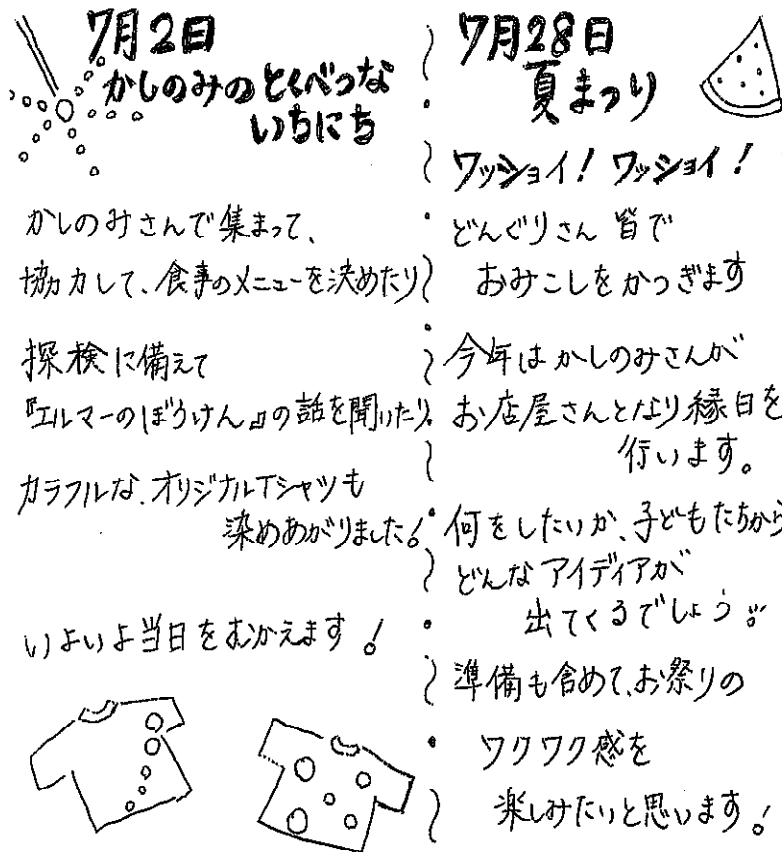 7月2日
かしのみのとくべつな
いちにち
かしのみさんで集まって、
協力して、食事のメニューを決めたり
探検に備えて
『エルマーのぼうけん』の話を聞いたり。
カラフルな、オリジナルTシャツも
染めあがりました!
いよいよ当日をむかえます!
7月28日
夏まつり
ワッショイ! ワッショイ!
どんぐりさん 皆で
おみこしをかつぎます
今年はかしのみさんが
お店屋さんとなり縁日を
行います。
何をしたいか、子どもたちから
どんなアイディアが
出てくるでしょう!!
準備も含めて、お祭りの
ワクワク感を
楽しみたいと思います!